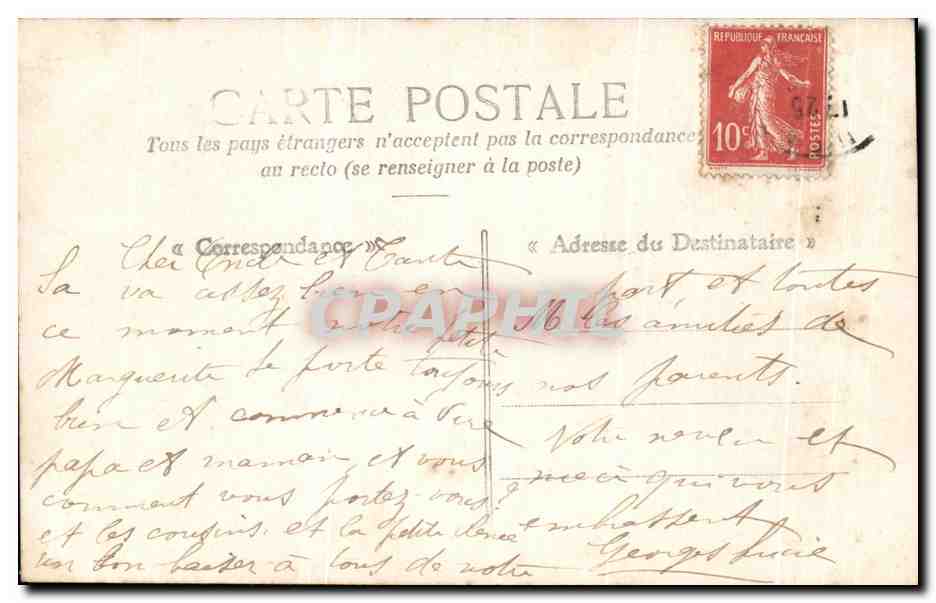 CARTE POSTALE
Tous les pays étrangers n'acceptent pas la correspondance
au recto (se renseigner à la poste)
REPUBLIQUE FRANÇAISE
10c
POSTES
17 25
« Correspondance »
Cher Oncle et Tante
Sa va assez bien en
ce moment notre petite
Marguerite se porte toujours
bien et commence à dire
papa et maman et vous
comment vous portez-vous?
et les cousins, et la petite
un bon baiser à tous de notre
« Adresse du Destinataire »
part et toutes
les amitiés de
nos parents.
Votre neveu et
nièce qui vous
embrassent
Georges Lucie
CPAPHIL